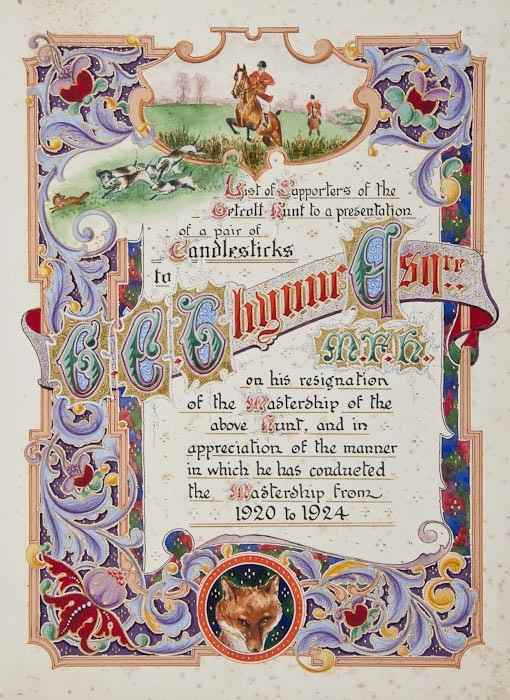 List of Supporters of the
Cetcott Hunt to a presentation
of a pair of
Candlesticks
to
G. C. Thynne Esqre
M.F.H.
on his resignation
of the Mastership of the
above Hunt, and in
appreciation of the manner
in which he has conducted
the Mastership from
1920 to 1924